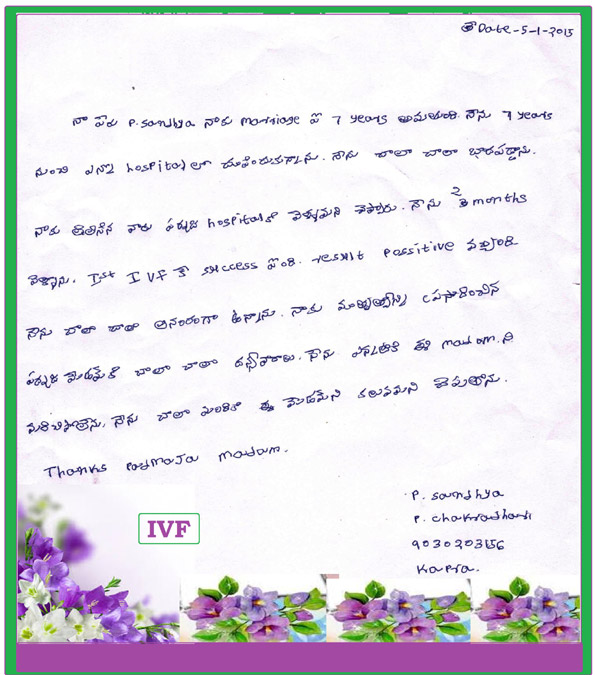 Date-5-1-2015
నా పేరు P. Sandhya నాకు marriage ఐ 7 years అవుతుంది. నేను 7 years
నుంచి ఎన్నో hospitalలో చూపించుకున్నాను. నేను చాలా చాలా భాదపడ్డాను.
నాకు తెలిసిన వారు పద్మజ hospitalకి వెళ్ళమని చెప్పారు. నేను 2 months
వెళ్ళాను. Ist IVF కే success ఐంది. result possitive వచ్చింది
నేను చాలా చాలా ఆనందంగా ఉన్నాను. నాకు మాతృత్వాన్ని ప్రసాదించిన
పద్మజ మేడమ్ కి చాలా చాలా ధన్యవాదాలు. నేను ఎప్పటికి ఈ madam.ని
మరిచిపోలేను. నేను చాలా మందికి ఈ మేడమ్ ని కలవమని చెపుతాను.
Thanks Padmaja madam.
P. Sandhya
P.
Kapra.
IVF